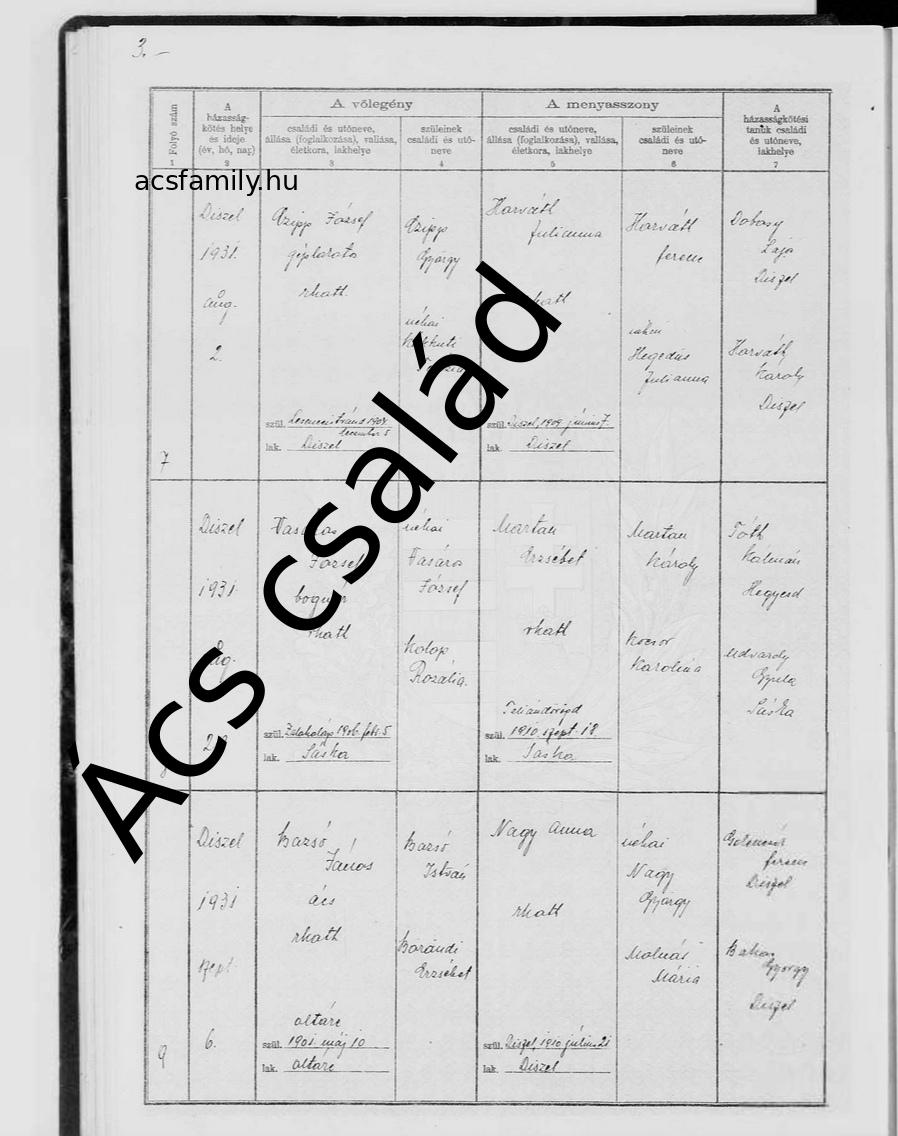 3. –
A vőlegény
A menyasszony
Folyó szám
1
A
házasság-
kötés helye
és ideje
(év, hó, nap)
2
családi és utóneve,
állása (foglalkozása), vallása,
életkora, lakhelye
3
szüleinek
családi és utó-
neve
4
családi és utóneve,
állása (foglalkozása), vallása,
életkora, lakhelye
5
szüleinek
családi és utó-
neve
6
A
házasságkötési
tanuk családi
és utóneve,
lakhelye
7
acsfamily.hu
Ács család
7
Diszel
1931.
aug.
2.
Czipp József
rkath.
szül.
1907.
december 5
lak. Diszel
Czipp
György
néhai
Horváth
Julianna
rkath
szül. Diszel, 1909. június 7.
lak. Diszel
Horváth
Ferenc
Hegedüs
Julianna
Dobosy
Lajo
Diszel
Horváth
Károly
Diszel
Diszel
1931.
József
bognár
rkath
szül. Zalahaláp 1906. febr. 5
lak. Sáska
néhai
Vasáro
József
Kolop
Rozália.
Martan
Erzsébet
rkath
szül. 1910. szept. 18.
lak. Sáska
Martan
Károly
Kocsor
Karolina
Tóth
Kálmán
Hegyesd
Udvardy
Gyula
Sáska
9
Diszel
1931
szept.
6.
Bazsó
János
ács
rkath
szül. 1901. máj 10
lak.
Bazsó
István
Barándi
Erzsébet
Nagy Anna
rkath
szül. Diszel, 1910 július 21
lak. Diszel
néhai
Nagy
György
Molnár
Mária
Ferenc
Diszel
György
Diszel